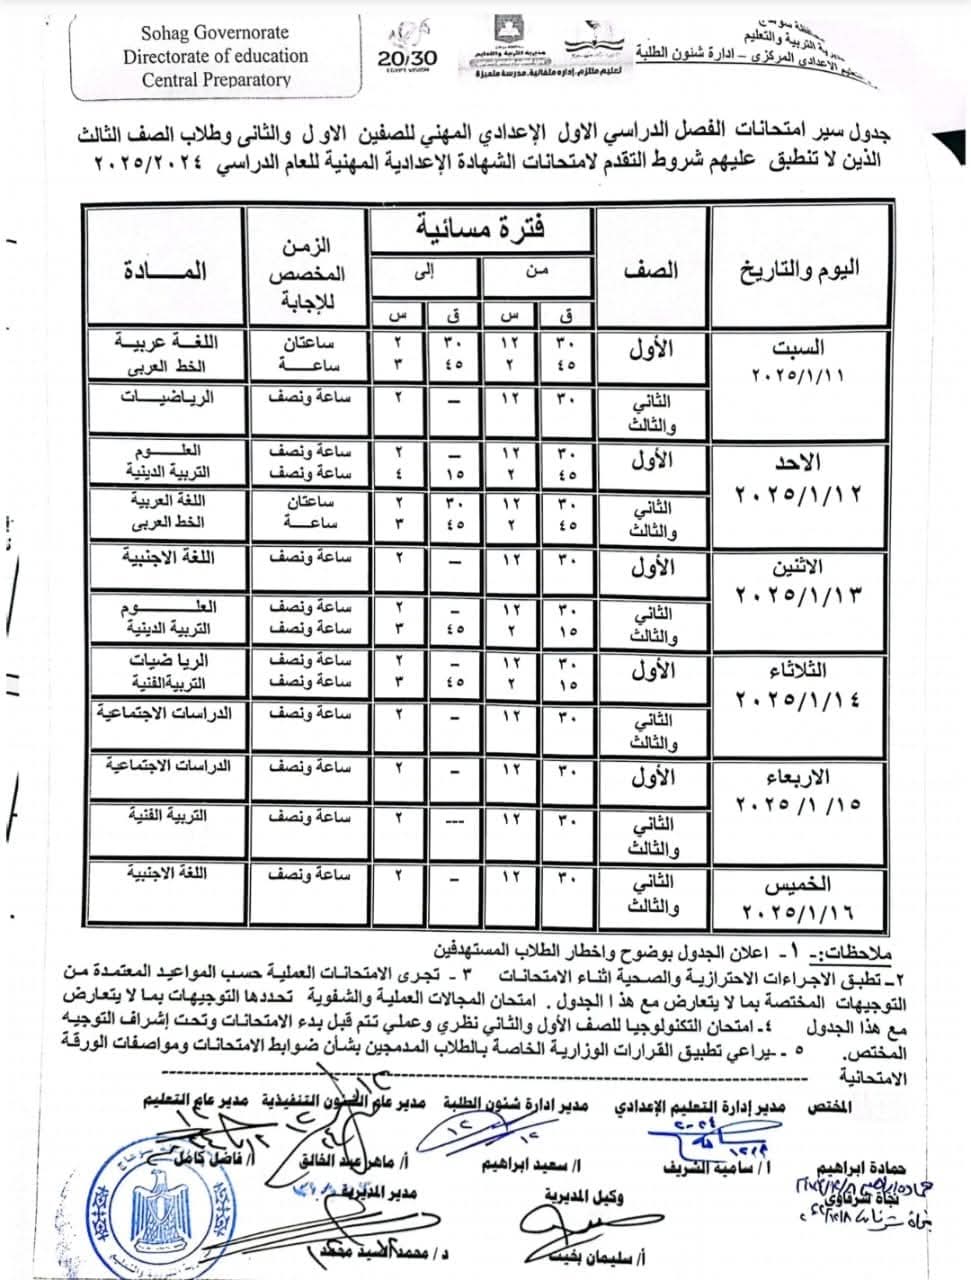 Sohag Governorate
Directorate of education
Central Preparatory
20/30
EGYPT VISION
مديرية التربية والتعليم
تعليم ملتزم، إدارة متفانية، مدرسة متميزة
التربية والتعليم
الاعدادى المركزى – ادارة شئون الطلبة
جدول سير امتحانات الفصل الدراسي الاول الإعدادي المهني للصفين الاول والثانى وطلاب الصف الثالث
الذين لا تنطبق عليهم شروط التقدم لامتحانات الشهادة الإعدادية المهنية للعام الدراسي ٢٠٢٥/٢٠٢٤
اليوم والتاريخ | الصف | فترة مسائية | الزمن المخصص للإجابة | المـــادة
من | إلى
ق | س | ق | س
السبت ٢٠٢٥/١/١١ | الأول | ٣٠ | ١٢ | ٣٠ | ٢ | ساعتان | اللغـة عربيـة
٤٥ | ٢ | ٤٥ | ٣ | ساعـــة | الخط العربى
الثاني والثالث | ٣٠ | ١٢ | – | ٢ | ساعة ونصف | الرياضيـات
الاحد ٢٠٢٥/١/١٢ | الأول | ٣٠ | ١٢ | – | ٢ | ساعة ونصف | العلـــوم
٤٥ | ٢ | ١٥ | ٤ | ساعة ونصف | التربية الدينية
الثاني والثالث | ٣٠ | ١٢ | ٣٠ | ٢ | ساعتان | اللغة العربية
٤٥ | ٢ | ٤٥ | ٣ | ساعـــة | الخط العربى
الاثنين ٢٠٢٥/١/١٣ | الأول | ٣٠ | ١٢ | – | ٢ | ساعة ونصف | اللغة الاجنبية
الثاني والثالث | ٣٠ | ١٢ | – | ٢ | ساعة ونصف | العلـــــوم
١٥ | ٢ | ٤٥ | ٣ | ساعة ونصف | التربية الدينية
الثلاثاء ٢٠٢٥/١/١٤ | الأول | ٣٠ | ١٢ | – | ٢ | ساعة ونصف | الريا ضيات
١٥ | ٢ | ٤٥ | ٣ | ساعة ونصف | التربيةالفنية
الثاني والثالث | ٣٠ | ١٢ | – | ٢ | ساعة ونصف | الدراسات الاجتماعية
الاربعاء ٢٠٢٥/١/١٥ | الأول | ٣٠ | ١٢ | – | ٢ | ساعة ونصف | الدراسات الاجتماعية
الثاني والثالث | ٣٠ | ١٢ | --- | ٢ | ساعة ونصف | التربية الفنية
الخميس ٢٠٢٥/١/١٦ | الثاني والثالث | ٣٠ | ١٢ | – | ٢ | ساعة ونصف | اللغة الاجنبية
ملاحظات:- ١- اعلان الجدول بوضوح واخطار الطلاب المستهدفين
٢– تطبق الاجراءات الاحترازية والصحية اثناء الامتحانات ٣ - تجرى الامتحانات العملية حسب المواعيد المعتمدة من
التوجيهات المختصة بما لا يتعارض مع هذا الجدول . امتحان المجالات العملية والشفوية تحددها التوجيهات بما لا يتعارض
مع هذا الجدول ٤- امتحان التكنولوجيا للصف الأول والثاني نظري وعملي تتم قبل بدء الامتحانات وتحت إشراف التوجيه
المختص. ٥ - يراعي تطبيق القرارات الوزارية الخاصة بالطلاب المدمجين بشأن ضوابط الامتحانات ومواصفات الورقة
الامتحانية
المختص مدير إدارة التعليم الإعدادي مدير ادارة شئون الطلبة مدير عام الشئون التنفيذية مدير عام التعليم
حمادة ابراهيم أ / سامية الشريف ا/ سعيد ابراهيم أ/ ماهر عبد الخالق أ/ فاضل كامل
نجاة شرقاوى وكيل المديرية مدير المديرية
أ/ سليمان بخيت د / محمد السيد محمد